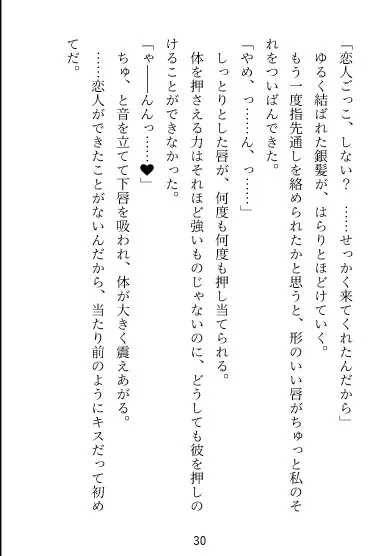 「恋人ごっこ、しない？　……せっかく来てくれたんだから」
　ゆるく結ばれた銀髪が、はらりとほどけていく。
　もう一度指先通しを絡められたかと思うと、形のいい唇がちゅっと私のそ
れをついばんできた。
「やめ、っ……ん、っ……」
　しっとりとした唇が、何度も何度も押し当てられる。
　体を押さえる力はそれほど強いものじゃないのに、どうしても彼を押しの
けることができなかった。
「ゃ――んんっ……♥」
　ちゅ、と音を立てて下唇を吸われ、体が大きく震えあがる。
　……恋人ができたことがないんだから、当たり前のようにキスだって初め
てだ。
30